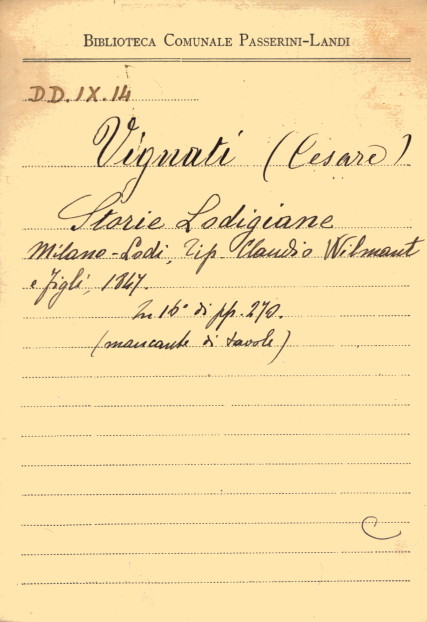 BIBLIOTECA COMUNALE PASSERINI-LANDI
DD.IX.14
Vignati (Cesare)
Storie Lodigiane
Milano-Lodi, Tip. Claudio Wilmant
e figli, 1847.
In 16° di pp. 270.
(mancante di tavole)
C